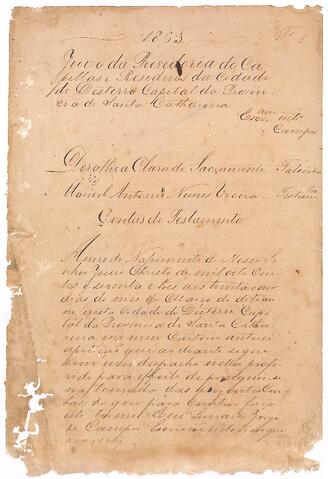 1863 Fl 1
Juizo da Provedoria de Ca
pellas e Residuos da Cidade
do Desterro Capital da Provin
cia de Santa Catharina
Escr.am int.o
Campos
Dorothea Clara do Sacramento Falecida
Manoel Antonio Nunes Vieira Testam.ro
Contas de Testamento
Anno do Nascimento de Nosso Se
nhor Jesus Christo de mil oito cen
tos e sessenta e tres aos trinta e um
dias do mes de Março do dito an
no nesta Cidade do Desterro Capi
tal da Provincia de Santa Catha
rina em meu Cartorio autuei
a petição que ao diante segue
com um despacho nella profe
rido para effeito de
tomada das prezentes Con
tas; de que para constar faço
este termo. Eu Jorge
de Campos Escrivão interino que
o escrevi